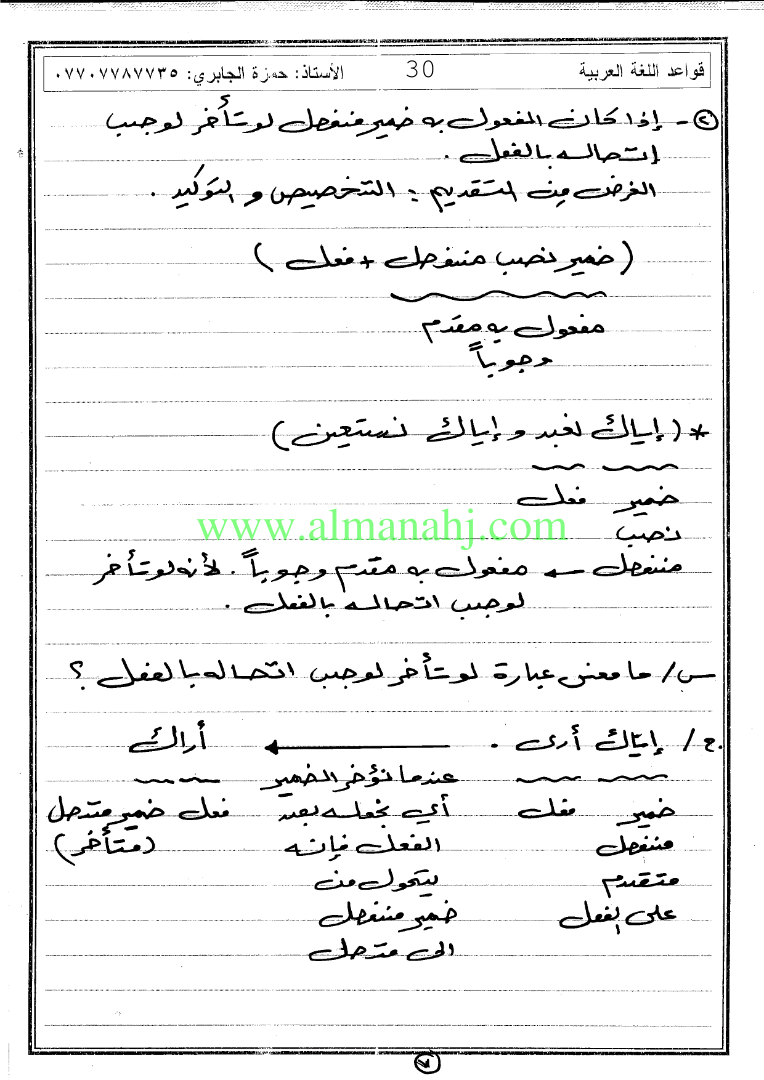 قواعد اللغة العربية 30 الأستاذ: حمزة الجابري: ٠٧٧٠٧٧٨٧٧٣٥
٢- إذا كان المفعول به ضمير منفصل لو تأخر لوجب
إتصاله بالفعل .
الغرض من التقديم : التخصيص و التوكيد .
( ضمير نصب منفصل + فعل )
مفعول به مقدم
وجوباً
* ( إياك نعبد و إياك نستعين )
ضمير فعل
نصب
www.almanahj.com
منفصل ← مفعول به مقدم وجوباً . لأنه لو تأخر
لوجب اتصاله بالفعل .
س/ ما معنى عبارة لو تأخر لوجب اتصاله بالفعل ؟
ج/ إيّاك أرى . ← أراك
عندما نؤخر الضمير
ضمير فعل أي نجعله بعد فعل ضمير متصل
منفصل الفعل فإنه (متأخر)
متقدم يتحول من
على الفعل ضمير منفصل
الى متصل
٧